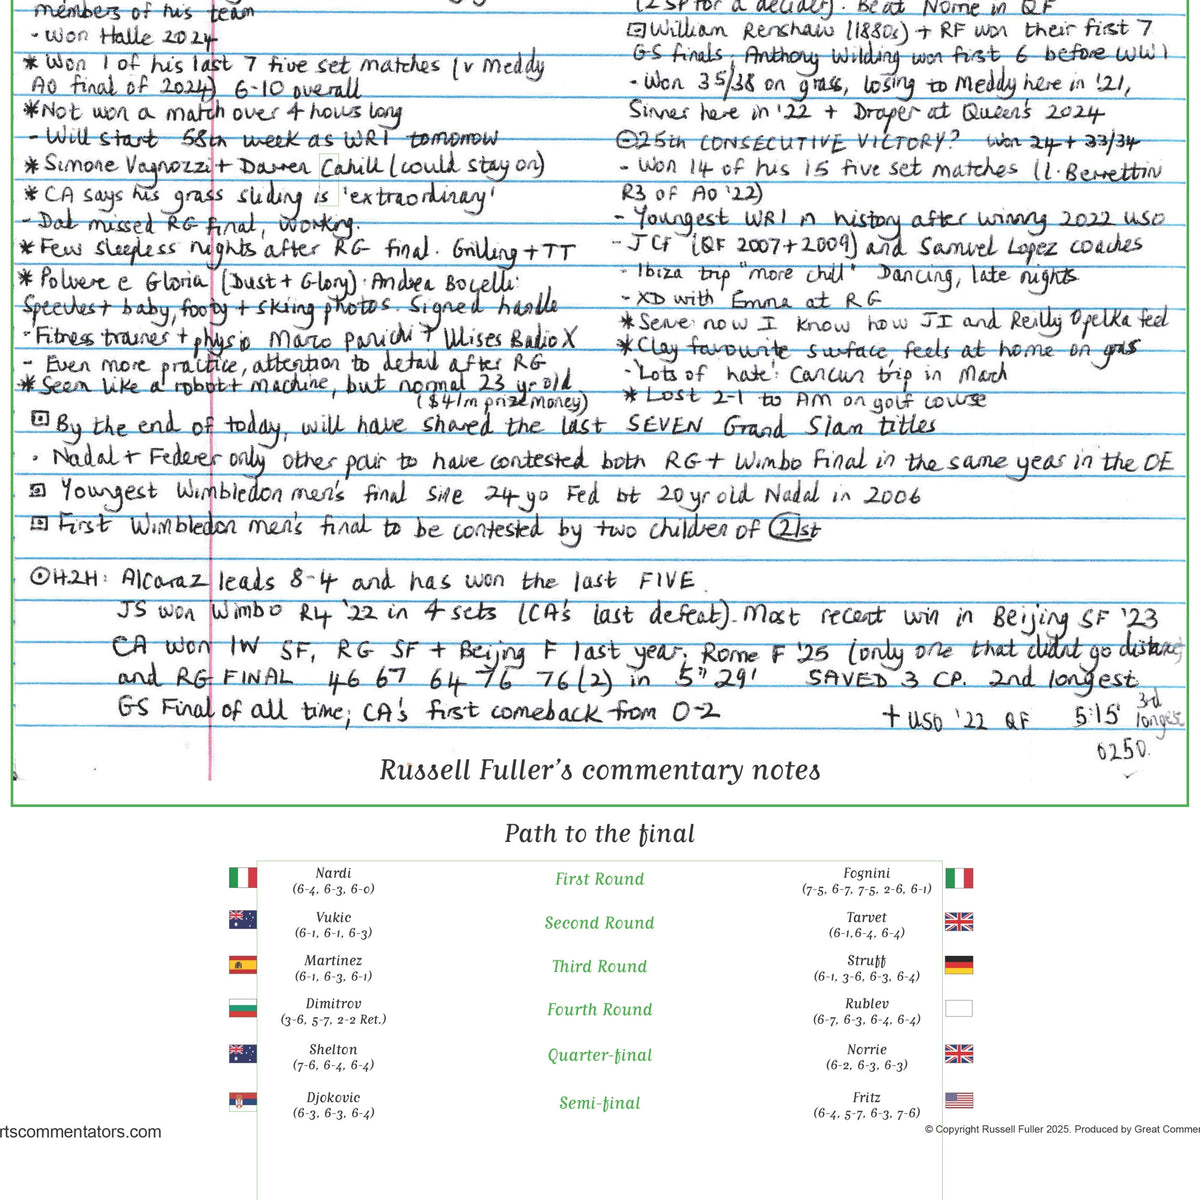 members of his team
- Won Halle 2024
* Won 1 of his last 7 five set matches (v Meddy
AO final of 2024) 6-10 overall
*Not won a match over 4 hours long
- Will start 58th week as WR1 tomorrow
* Simone Vagnozzi + Darren Cahill (could stay on)
* CA says his grass sliding is 'extraordinary'
- Dad missed RG final, working.
* Few sleepless nights after RG final. Grilling + TT
* Polvere e Gloria (Dust + Glory): Andrea Bocelli:
Speeches + baby, footy + skiing photos. Signed handle
- Fitness trainer + physio Marco Panichi + Ulises Badio X
- Even more practice, attention to detail after RG
* Seen like a robot + machine, but normal 23 yr old
($41m prize money)
(2 SP for a decider). Beat Norrie in QF
William Renshaw (1880s) + RF won their first 7
GS finals, Anthony Wilding won first 6 before WW1
- Won 35/38 on grass, losing to Meddy here in '21,
Sinner here in '22 + Draper at Queen's 2024
25th CONSECUTIVE VICTORY? Won 24 + 33/34
- Won 14 of his 15 five set matches (l. Berrettini
R3 of AO '22)
- Youngest WR1 in history after winning 2022 USO
- JCF (QF 2007 + 2009) and Samuel Lopez coaches
- Ibiza trip "more chill" Dancing, late nights
- XD with Emma at RG
* Serve: now I know how JI and Reilly Opelka feel
* Clay favourite surface, feels at home on grass
- 'Lots of hate': Cancun trip in March
* Lost 2-1 to AM on golf course
By the end of today, will have shared the last SEVEN Grand Slam titles
• Nadal + Federer only other pair to have contested both RG + Wimbo Final in the same year in the OE
Youngest Wimbledon men's final sine 24 yo Fed bt 20 yr old Nadal in 2006
First Wimbledon men's final to be contested by two children of 21st
H2H: Alcaraz leads 8-4 and has won the last FIVE.
JS won Wimbo R4 '22 in 4 sets (CA's last defeat). Most recent win in Beijing SF '23
CA won IW SF, RG SF + Beijing F last year, Rome F '25 (only one that didnt go distance)
and RG FINAL 46 67 64 76 76(2) in 5" 29' SAVED 3 CP. 2nd longest
GS Final of all time; CA's first comeback from 0-2
+ USO '22 QF 5:15' 3rd longest
0250.
Russell Fuller's commentary notes
Path to the final
Nardi First Round Fognini
(6-4, 6-3, 6-0) (7-5, 6-7, 7-5, 2-6, 6-1)
Vukic Second Round Tarvet
(6-1, 6-1, 6-3) (6-1,6-4, 6-4)
Martinez Third Round Struff
(6-1, 6-3, 6-1) (6-1, 3-6, 6-3, 6-4)
Dimitrov Fourth Round Rublev
(3-6, 5-7, 2-2 Ret.) (6-7, 6-3, 6-4, 6-4)
Shelton Quarter-final Norrie
(7-6, 6-4, 6-4) (6-2, 6-3, 6-3)
Djokovic Semi-final Fritz
(6-3, 6-3, 6-4) (6-4, 5-7, 6-3, 7-6)
rtscommentators.com
© Copyright Russell Fuller 2025. Produced by Great Commer